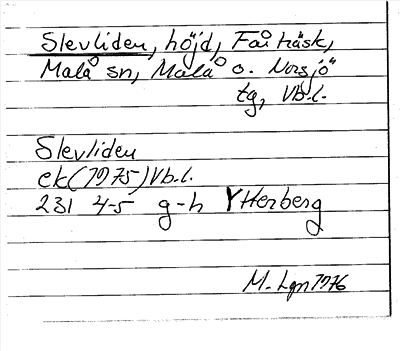 Slevliden, höjd, Fårträsk,
Malå sn, Malå o. Norsjö
tg, Vb.l.
Slevliden
ek (1975) Vb.l.
231 4-5 g-h Ytterberg
M. Lgn 1976